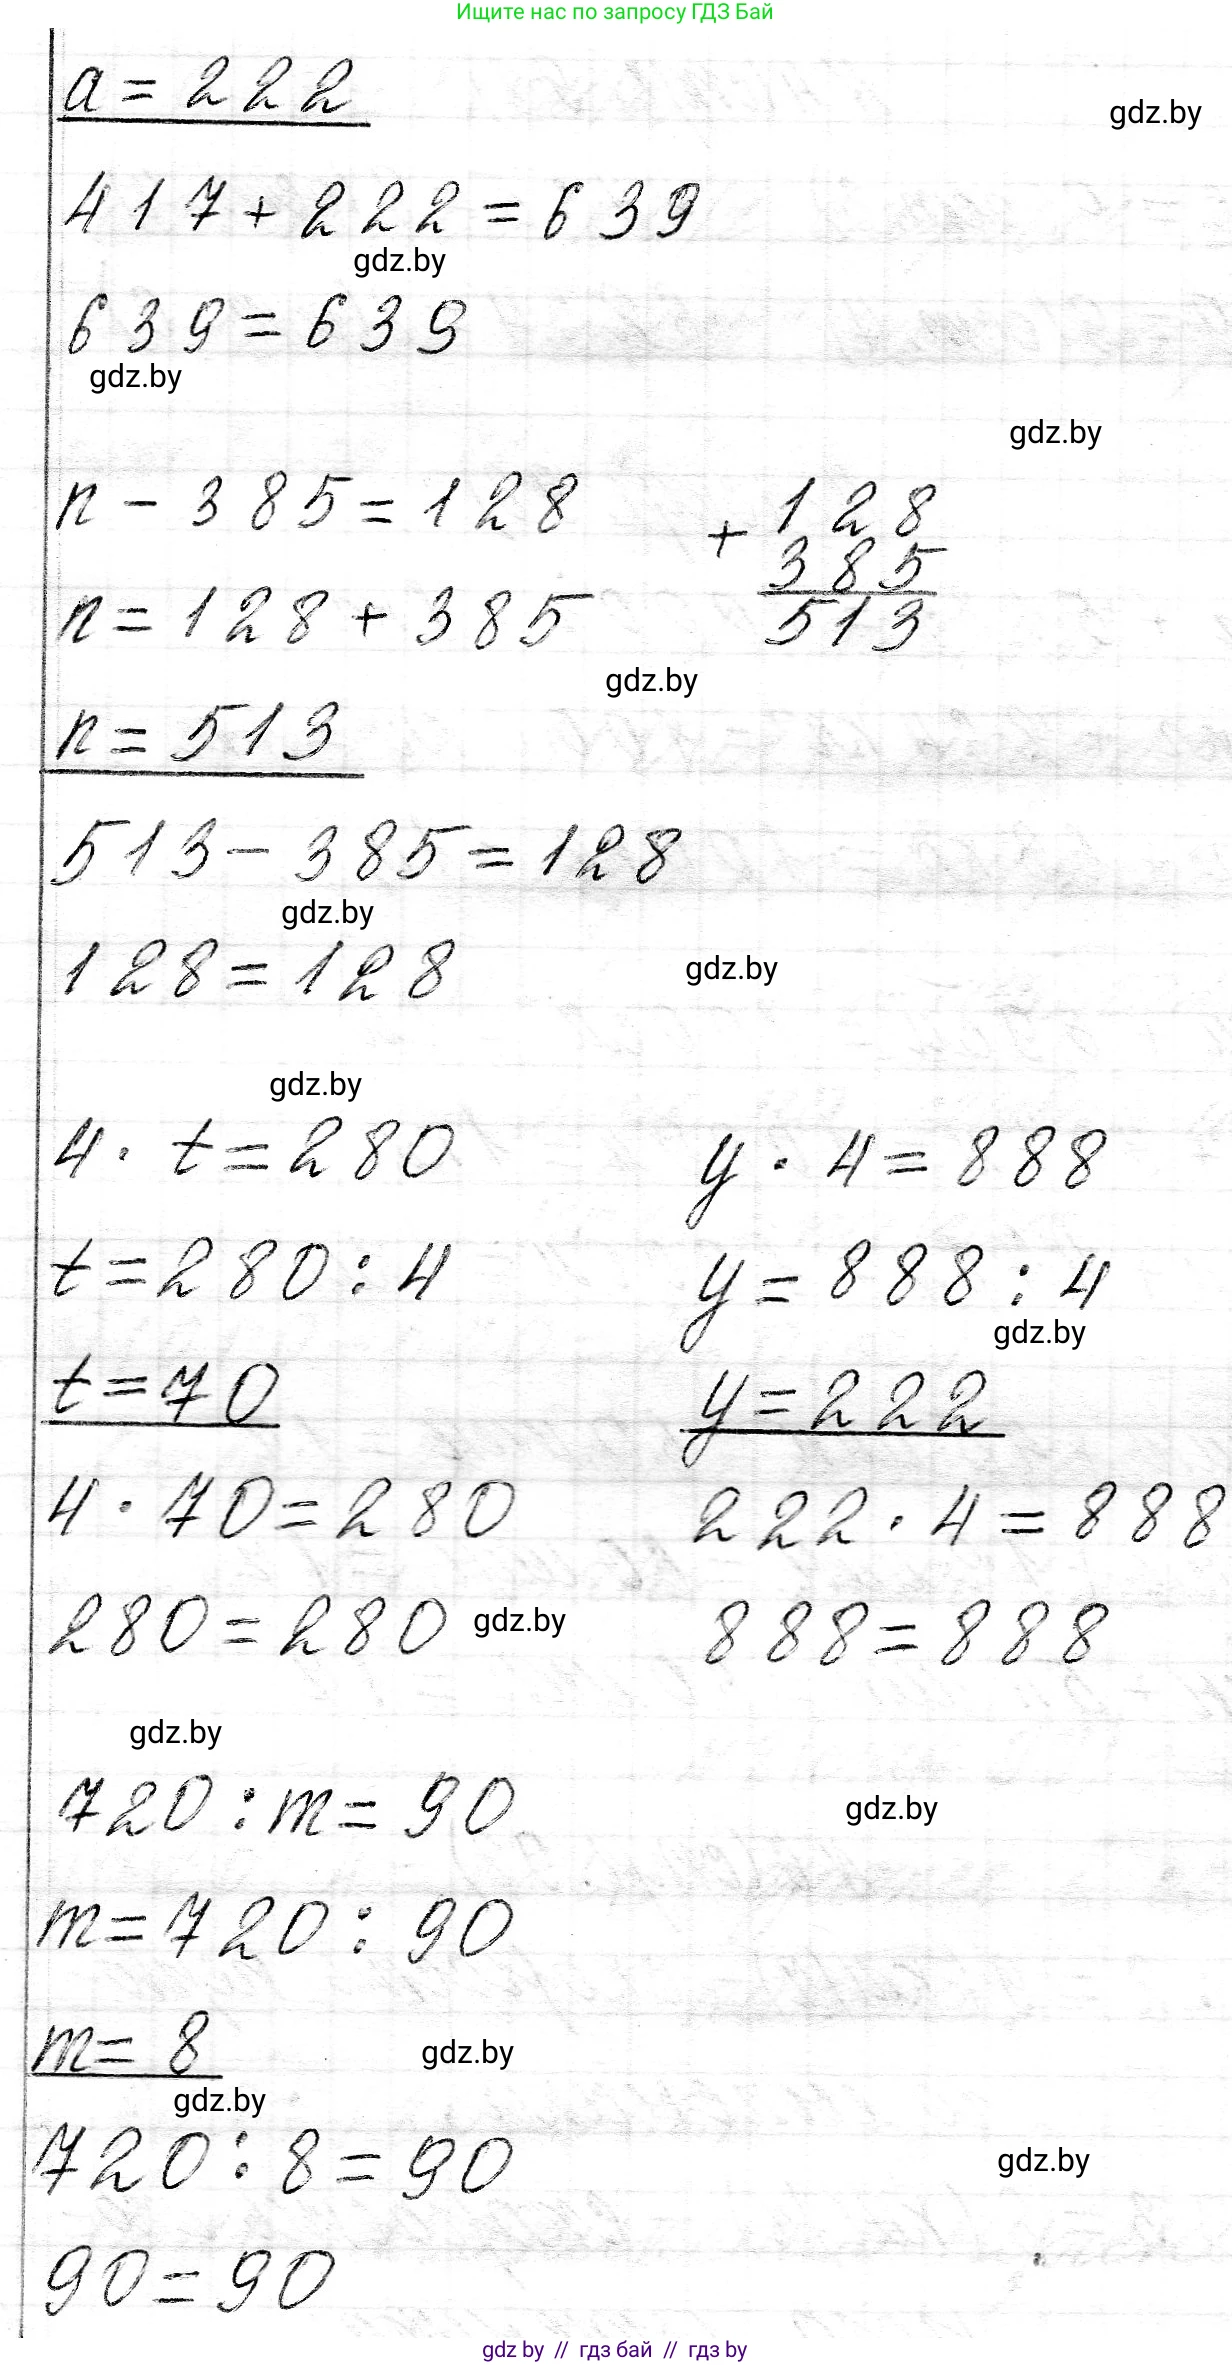 Ищите нас по запросу ГДЗ Бай
a = 222
gdz.by
417 + 222 = 639
gdz.by
639 = 639
gdz.by
gdz.by
n - 385 = 128
+ 128
385
513
n = 128 + 385
gdz.by
n = 513
513 - 385 = 128
gdz.by
128 = 128
gdz.by
gdz.by
4 · t = 280
t = 280 : 4
t = 70
4 · 70 = 280
280 = 280
gdz.by
y · 4 = 888
y = 888 : 4
gdz.by
y = 222
222 · 4 = 888
888 = 888
gdz.by
720 : m = 90
gdz.by
m = 720 : 90
m = 8
gdz.by
gdz.by
720 : 8 = 90
gdz.by
90 = 90
gdz by // гдз бай // gdz by